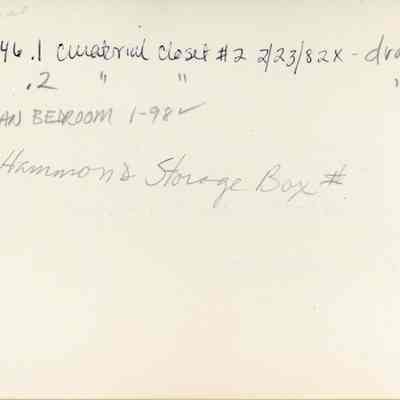 46.1 curatorial closet #2 2/23/82x - dra
.2 " " "
AN BEDROOM 1-98 ✓
Hammond Storage Box #